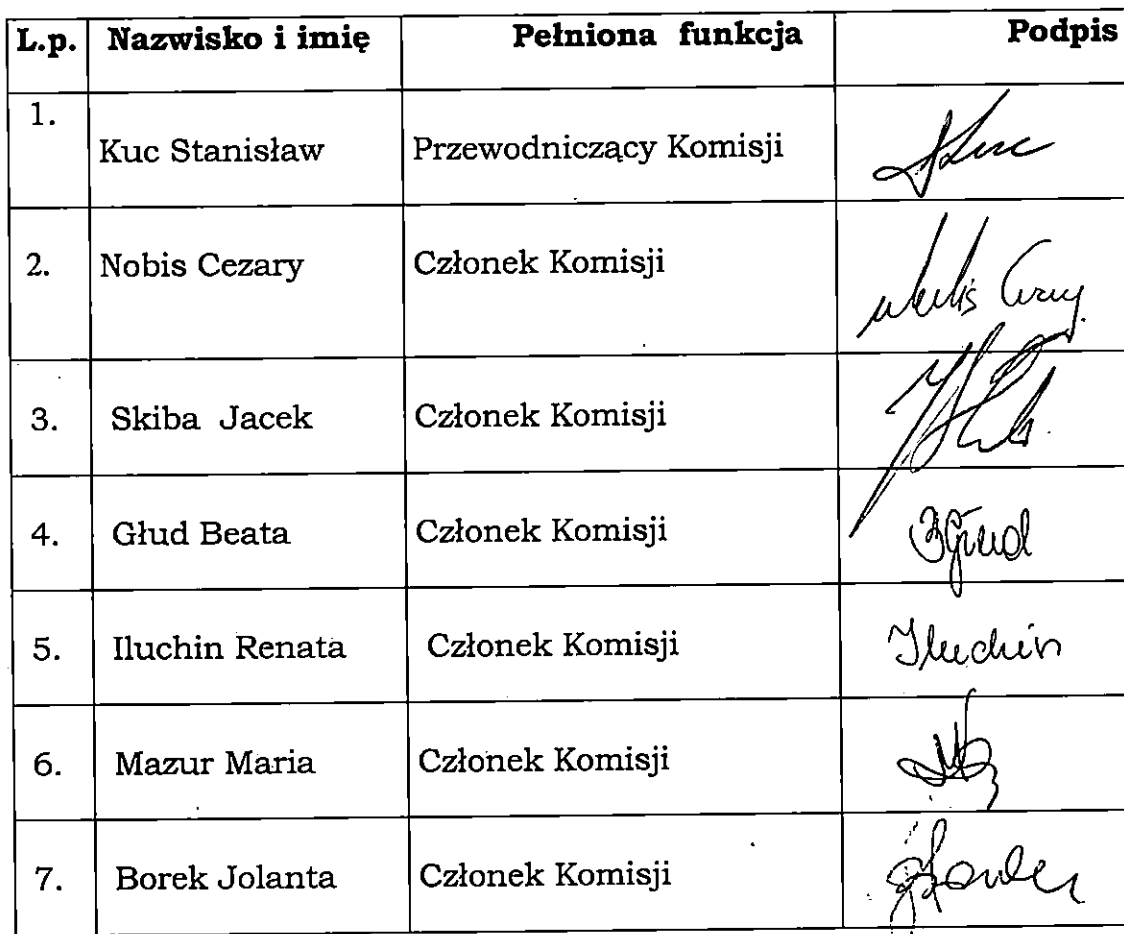 L.p. Nazwisko i imię Pełniona funkcja Podpis
1. Kuc Stanisław Przewodniczący Komisji Kuc
2. Nobis Cezary Członek Komisji
3. Skiba Jacek Członek Komisji
4. Głud Beata Członek Komisji BGłud
5. Iluchin Renata Członek Komisji Iluchin
6. Mazur Maria Członek Komisji
7. Borek Jolanta Członek Komisji